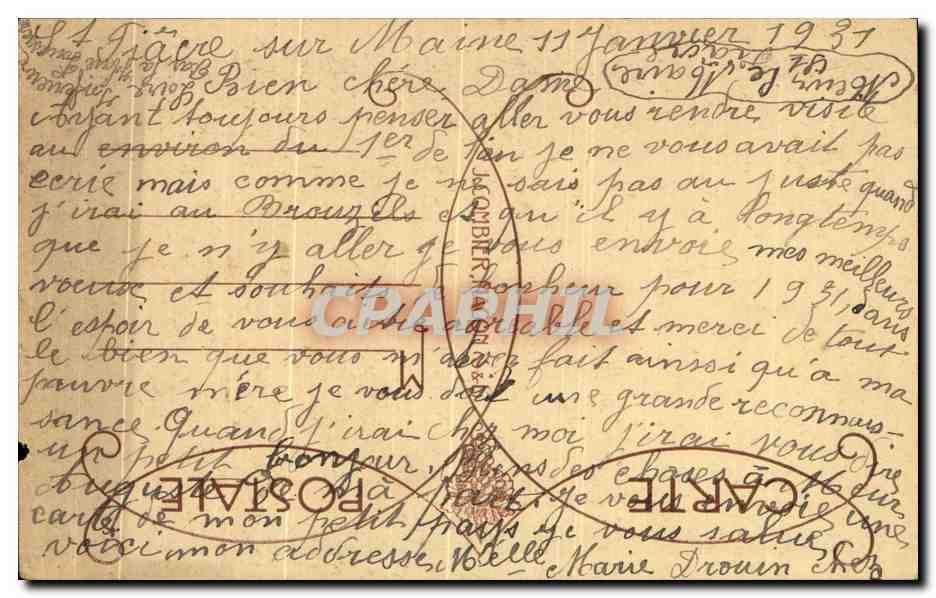 St Fiacre sur Maine 11 Janvier 1931
Bien chère Dame
ayant toujours penser aller vous rendre visite
au environ du 1er de l'an je ne vous avait pas
ecrie mais comme je ne sais pas au juste quand
j'irai au Brouzils et qu'il y à longtemps
que je n'y aller je vous envoie mes meilleurs
voeux et souhaits de bonheur pour 1931, dans
l'espoir de vous aitre agréable et merci de tout
le bien que vous m'avez fait ainssi qu'à ma
pauvre mère je vous doit une grande reconnais-
sance. Quand j'irai chez moi j'irai vous dire
un petit bonjour, biens des choses à Meur
Auguste à part je vous envoie une
carte de mon petit pays je vous salue,
voici mon addresse Melle Marie Drouin chez
Meur le Maire
St Fiacre
Loire Inférieure
CARTE POSTALE
M
CPARHIL